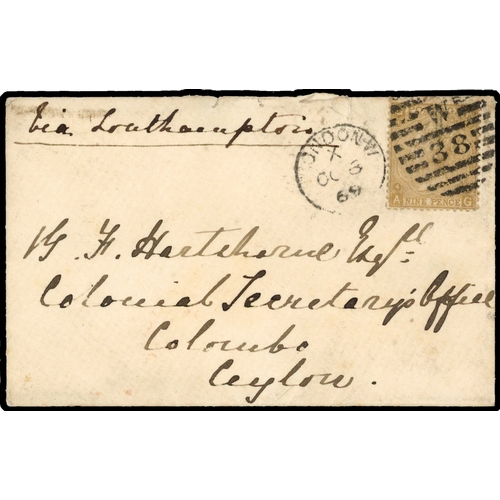 Via Southampton
LONDON·W
X
OC 8
69
W
38
A NINE PENCE G
B. F. Hartshorne Esqre
Colonial Secretary's Office
Colombo
Ceylon.